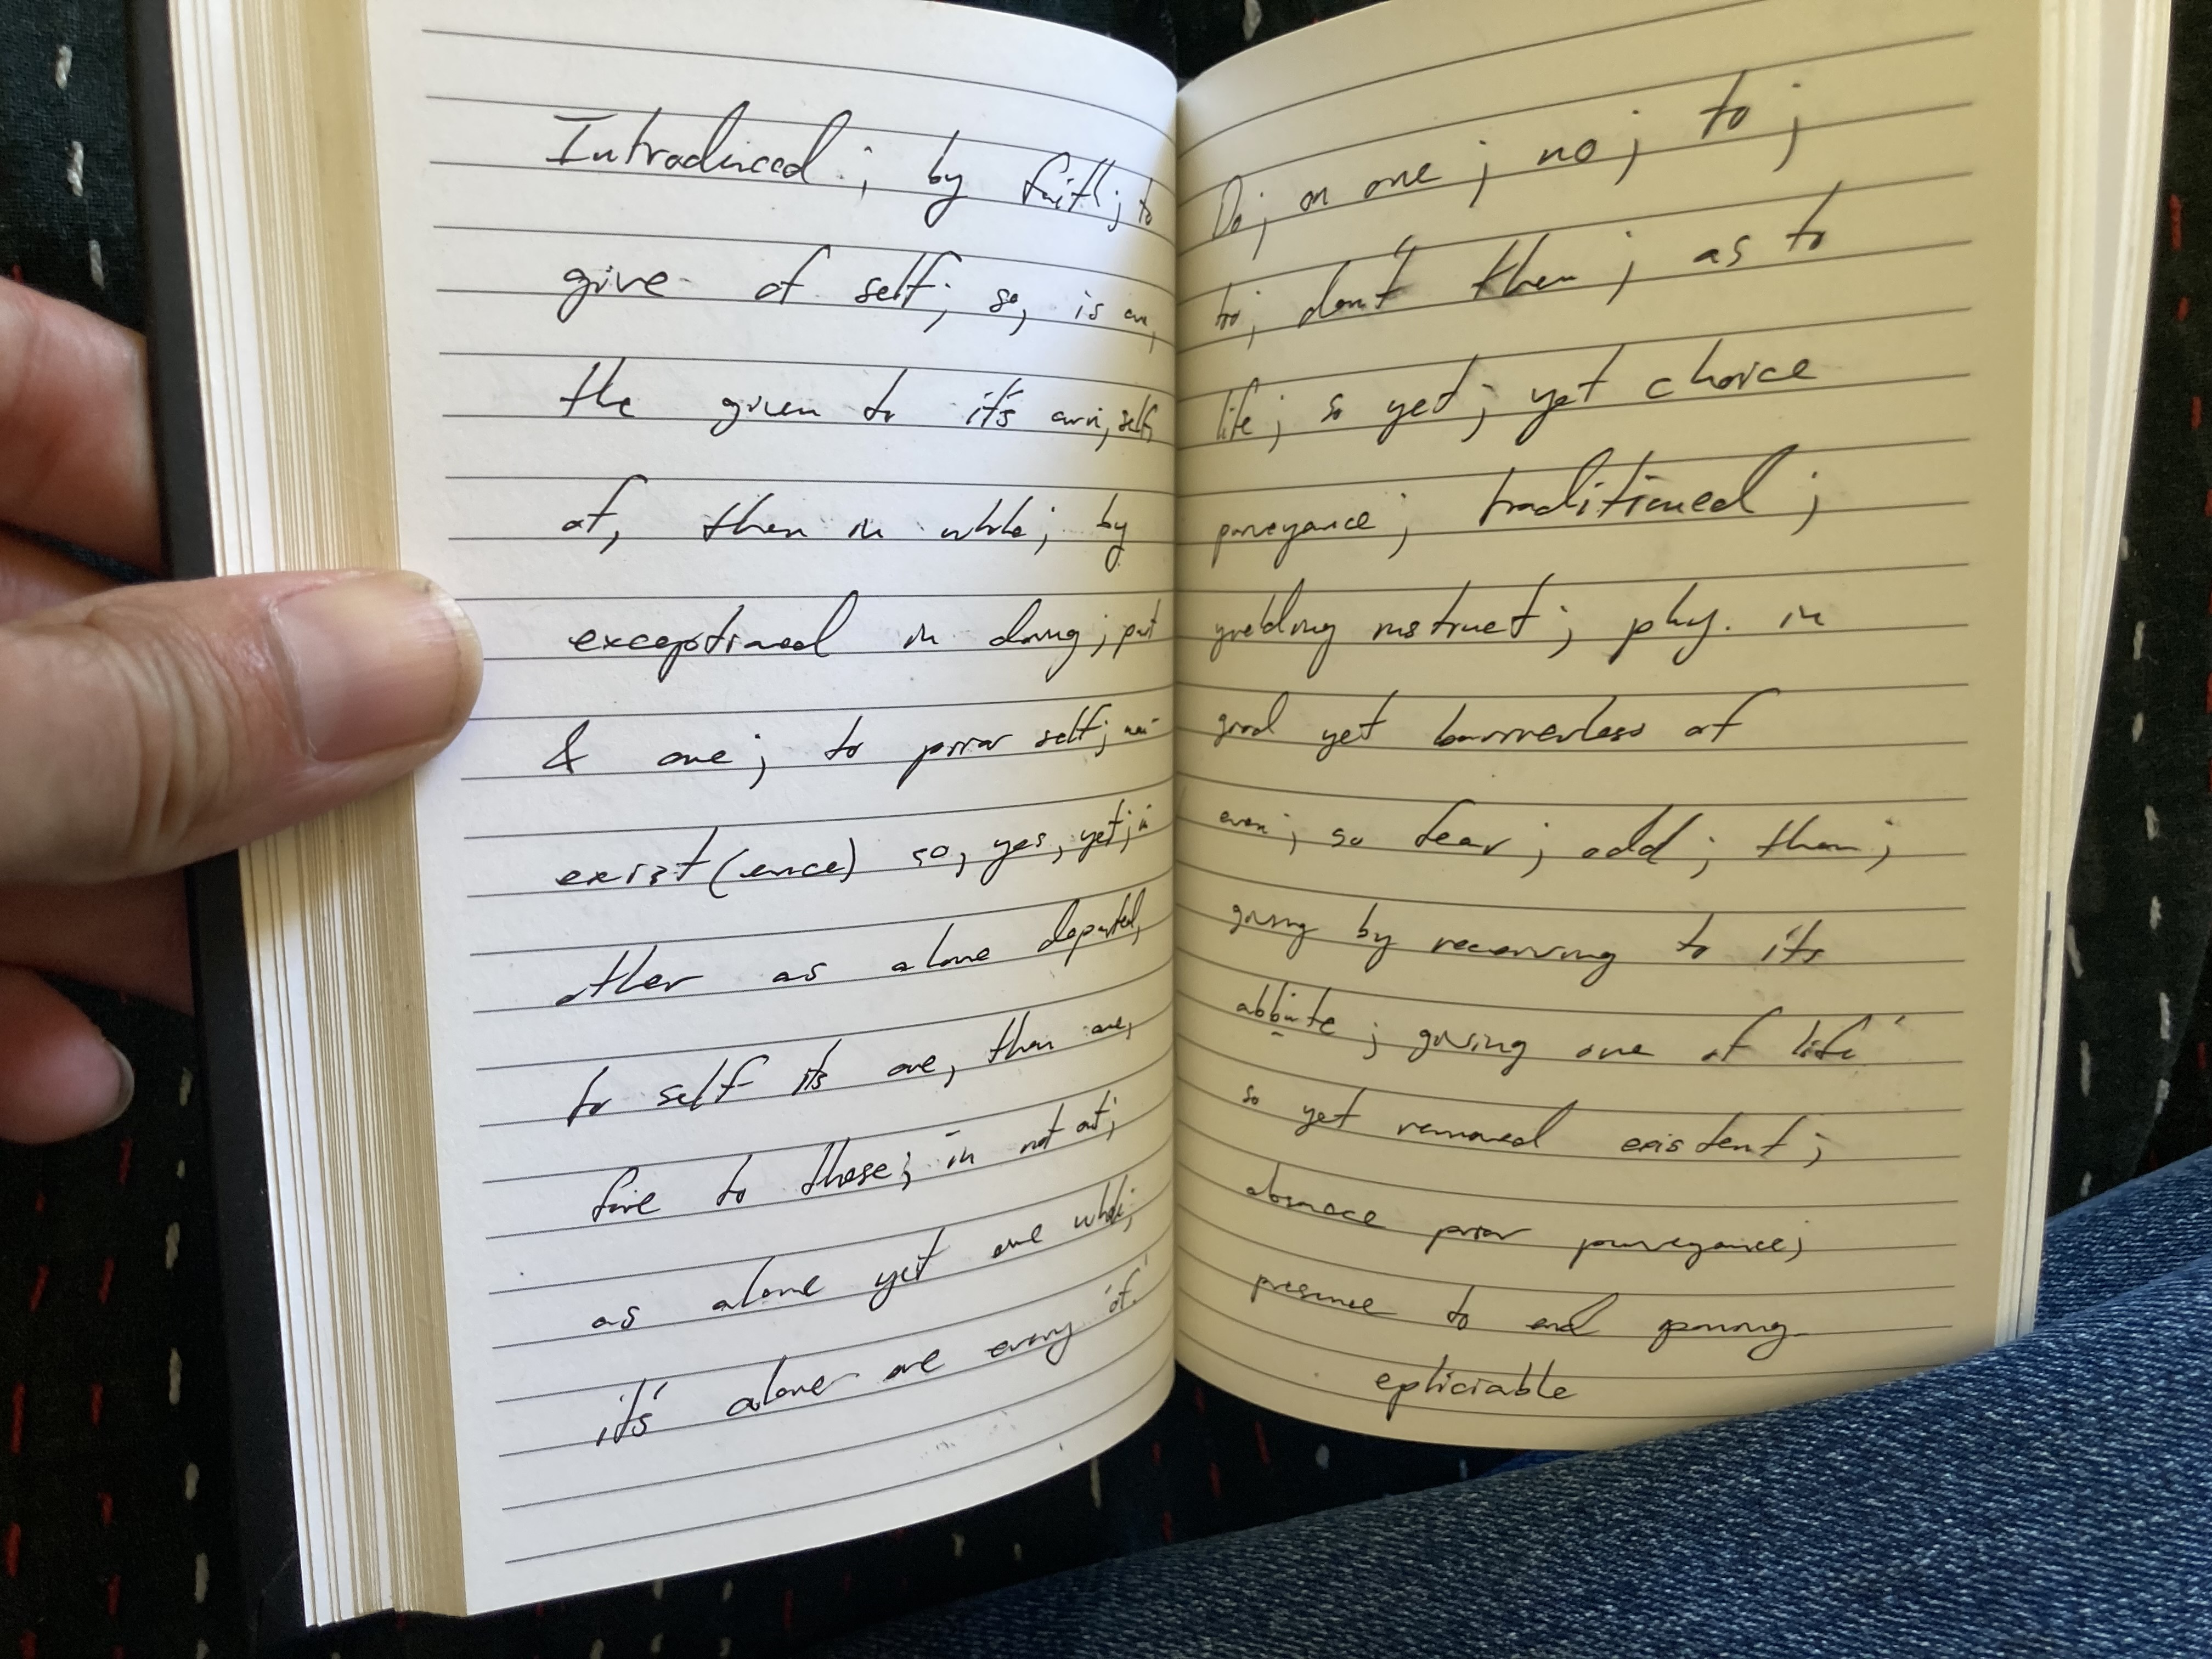 Introduced; by faith; to
give of self; so, is one,
the given to it's own, self,
of, then in whole; by
exceptioned in doing; part
& one; to prior self; non-
exist(ence) so, yes, yet; in
other as alone departed,
to self its one, then one,
five to these; in not out;
as alone yet one whole;
it's alone one every 'of'
Do; on one; no; to;
to; don't then; as to
life; so yet; yet choice
purveyance; traditioned;
yielding instruct; phy. in
good yet barrierless of
even; so fear; odd; then;
giving by receiving to its
; giving one of life'
so yet removed existent;
absence prior purveyance;
presence to end
epliciable